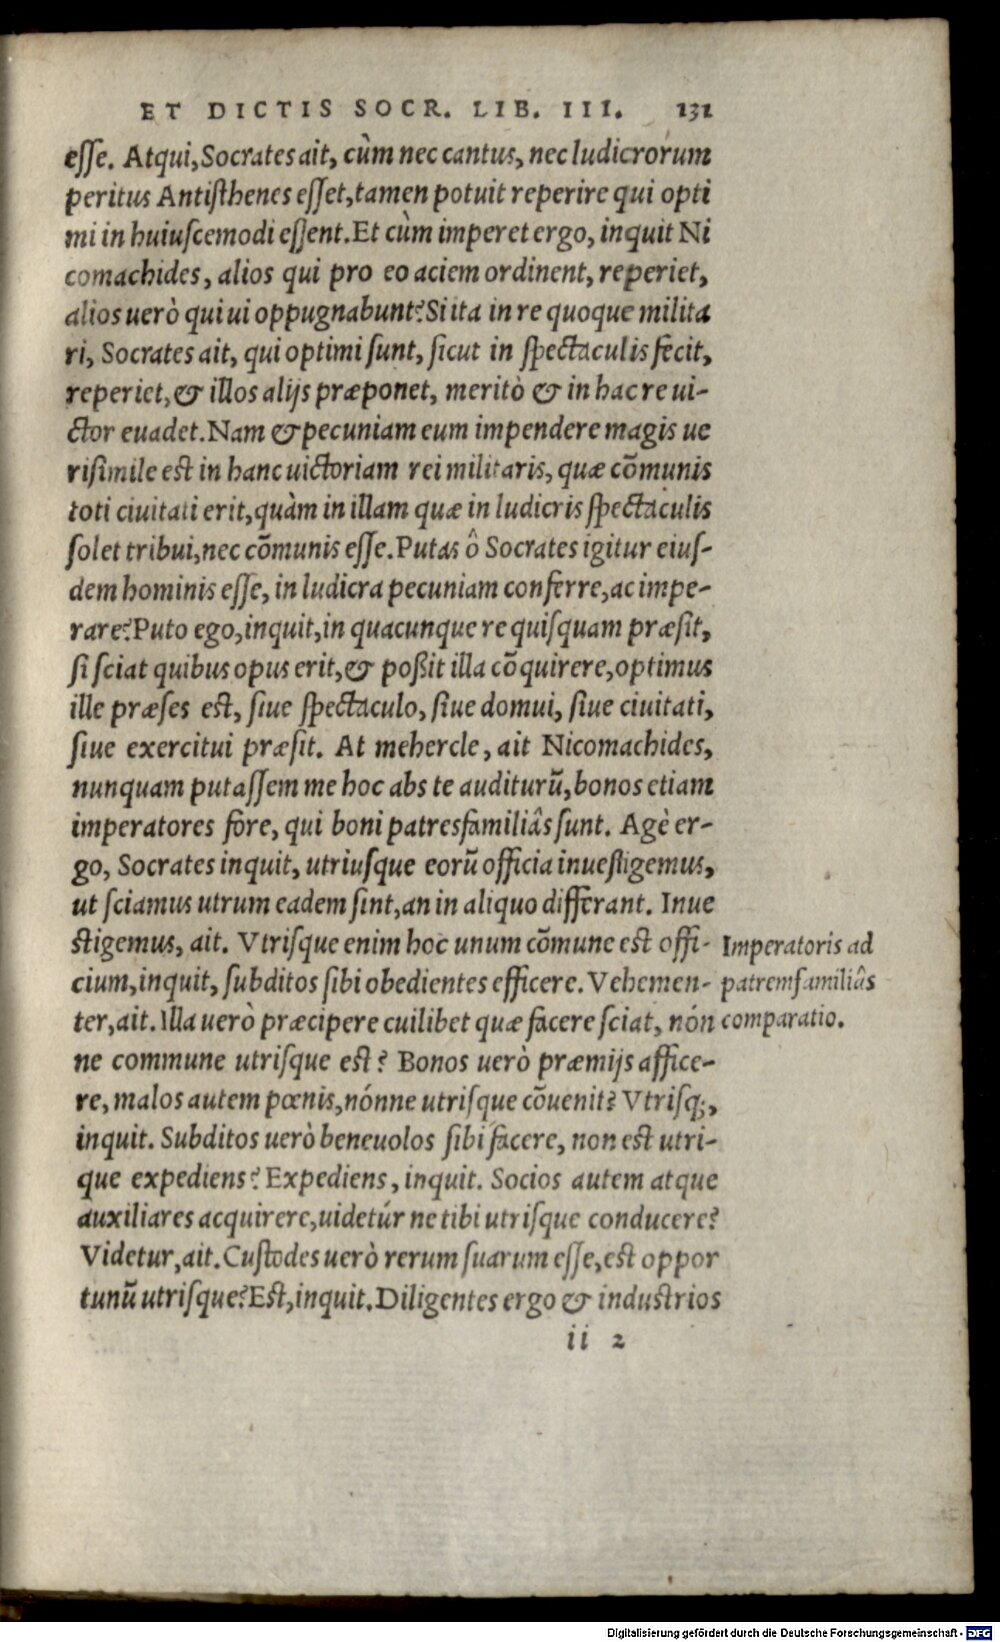 ET DICTIS SOCR. LIB. III. 131
eſſe. Atqui, Socrates ait, cùm nec cantus, nec ludicrórum
peritus Antiſthenes eſſet, tamen potuit reperire qui opti
mi in huiuſcemodi eſſent. Et cùm imperet ergo, inquit Ni
comachides, alios qui pro eo aciem ordinent, reperiet,
alios uerò qui ui oppugnabunt? Si ita in re quoque milita
ri, Socrates ait, qui optimi ſunt, ſicut in ſpectaculis fecit,
reperiet, & illos alijs præponet, meritò & in hac re ui-
ctor euadet. Nam & pecuniam eum impendere magis ue
riſimile est in hanc uictoriam rei militaris, quæ cōmunis
toti ciuitati erit, quàm in illam quæ in ludicris ſpectaculis
ſolet tribui, nec cōmunis eſſe. Putas ô Socrates igitur eiuſ-
dem hominis eſſe, in ludicra pecuniam conferre, ac impe-
rare? Puto ego, inquit, in quacunque re quiſquam præſit,
ſi ſciat quibus opus erit, & poßit illa cōquirere, optimus
ille præſes est, ſiue ſpectaculo, ſiue domui, ſiue ciuitati,
ſiue exercitui præſit. At mehercle, ait Nicomachides,
nunquam putaſſem me hoc abs te auditurū, bonos etiam
imperatores fore, qui boni patresfamiliâs ſunt. Agè er-
go, Socrates inquit, utriuſque eorū officia inueſtigemus,
ut ſciamus utrum eadem ſint, an in aliquo differant. Inue
ſtigemus, ait. Vtriſque enim hoc unum cōmune est offi-
cium, inquit, ſubditos ſibi obedientes efficere. Vehemen-
ter, ait. Illa uerò præcipere cuilibet quæ facere ſciat, nón
ne commune utriſque est? Bonos uerò præmijs affice-
re, malos autem pœnis, nónne utriſque cōuenit? Vtriſq;,
inquit. Subditos uerò beneuolos ſibi facere, non est utri-
que expediens? Expediens, inquit. Socios autem atque
auxiliares acquirere, uidetúr ne tibi utriſque conducere?
Videtur, ait. Cuſtodes uerò rerum ſuarum eſſe, est oppor
tunū utriſque? Est, inquit. Diligentes ergo & induſtrios
ii 2
Imperatoris ad
patremfamiliâs
comparatio.
Digitalisierung gefördert durch die Deutsche Forschungsgemeinschaft - DFG